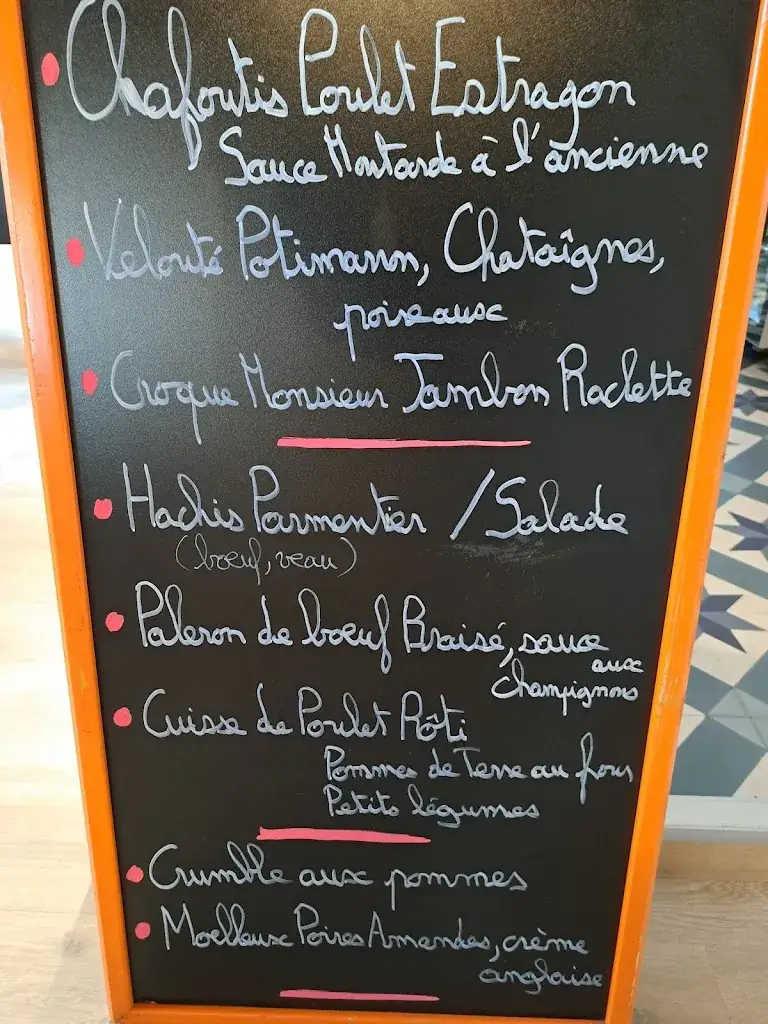 Chafoutis Poulet Estragon
Sauce Moutarde à l'ancienne
Velouté Potimaron, Chataîgnes,
poireaux
Croque Monsieur Jambon Raclette
Hachis Parmentier / Salade
(boeuf, veau)
Paleron de boeuf Braisé, sauce
aux
champignons
Cuisse de Poulet Rôti
Pommes de Terre au four
Petits légumes
Crumble aux pommes
Moelleux Poires Amandes, crème
anglaise